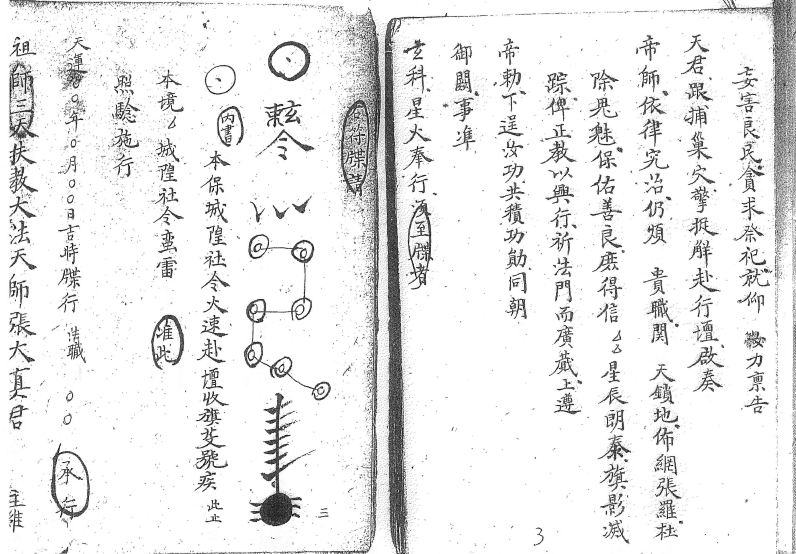 妄害良民貪求祭祀就仰 力禀告
天君跟捕巢穴擎捉解赴行壇啟奏
帝師依律究治仍煩 貴職関 天鎖地佈網張羅杜
除鬼魅保佑善良庶得信ㄙㄙ星辰朗奏旗影滅
踪俾正教以興行祈法門而廣蕆上遵
帝勅下逞汝功共積功勛同朝
御闕事準
玄科星火奉行須至牒者
3
右符牒請
敕令
三
內書
本保城隍社令火速赴壇收旗芟號疾
此止
本境ㄙ城隍社令蛮雷
准此
照驗施行
天運〇〇年〇月〇〇日吉時牒行 浩職 〇〇 承行
祖師三天扶教大法天師張大真君 主維